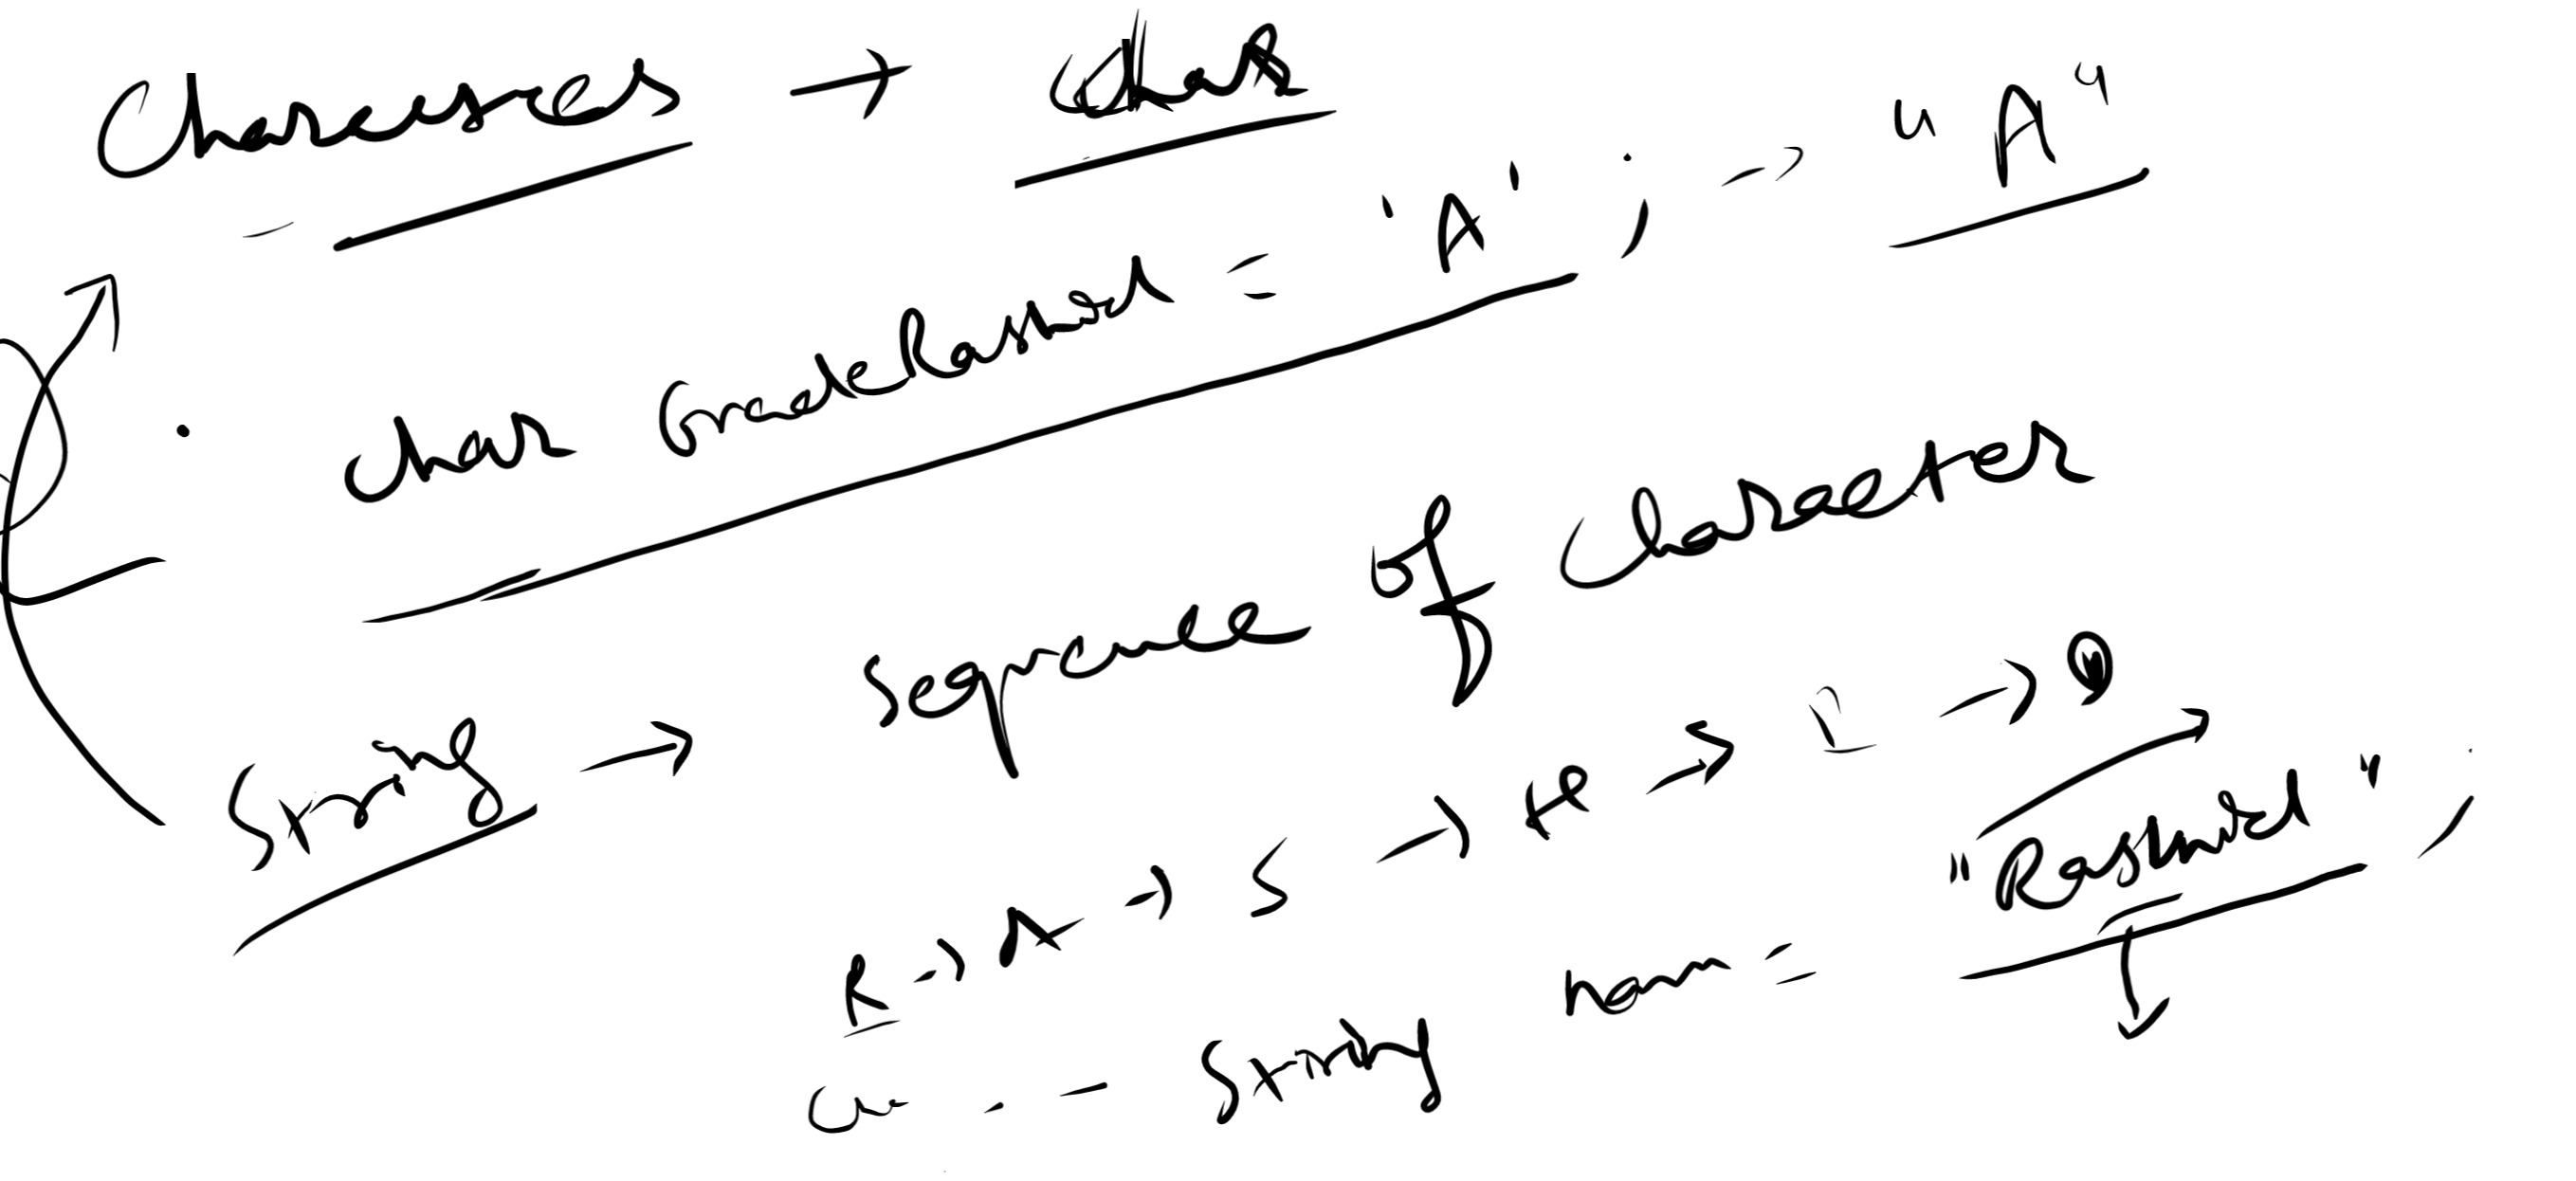 Characters → char
char GradeRashid = 'A' ; → "A"
String → sequence of character
R → A → S → H → I → D
String nam = "Rashid" ;